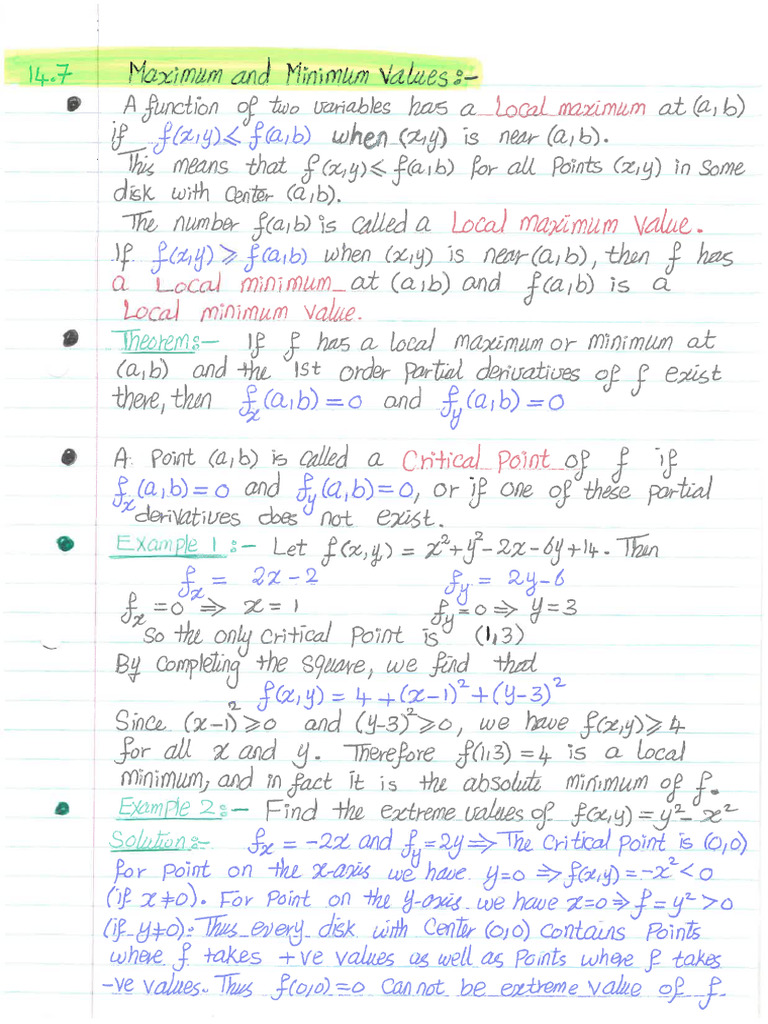 14.7 Maximum and Minimum Values:-
A function of two variables has a Local maximum at (a,b)
if f(x,y)⩽ f(a,b) when (x,y) is near (a,b).
This means that f(x,y)⩽ f(a,b) for all Points (x,y) in some
disk with center (a,b).
The number f(a,b) is called a Local maximum value.
If f(x,y) ⩾ f(a,b) when (x,y) is near (a,b), then f has
a Local minimum at (a,b) and f(a,b) is a
Local minimum value.
Theorem:- If f has a local maximum or minimum at
(a,b) and the 1st order partial derivatives of f exist
there, then fx(a,b)=0 and fy(a,b)=0
A Point (a,b) is called a Critical Point of f if
fx(a,b)=0 and fy(a,b)=0, or if one of these partial
derivatives does not exist.
Example 1:- Let f(x,y) = x²+y²-2x-6y+14. Then
fx = 2x-2 fy = 2y-6
fx=0 ⇒ x=1 fy=0 ⇒ y=3
So the only critical Point is (1,3)
By completing the square, we find that
f(x,y) = 4+(x-1)²+(y-3)²
Since (x-1)²⩾0 and (y-3)²⩾0, we have f(x,y)⩾4
for all x and y. Therefore f(1,3)=4 is a local
minimum, and in fact it is the absolute minimum of f.
Example 2:- Find the extreme values of f(x,y)=y²-x²
Solution:- fx = -2x and fy=2y⇒ The Critical Point is (0,0)
for point on the x-axis we have y=0 ⇒f(x,y)=-x²<0
(if x≠0). For Point on the y-axis we have x=0⇒f=y²>0
(if y≠0). Thus every disk with Center (0,0) contains Points
where f takes +ve values as well as Points where f takes
-ve values. Thus f(0,0)=0 cannot be extreme value of f.